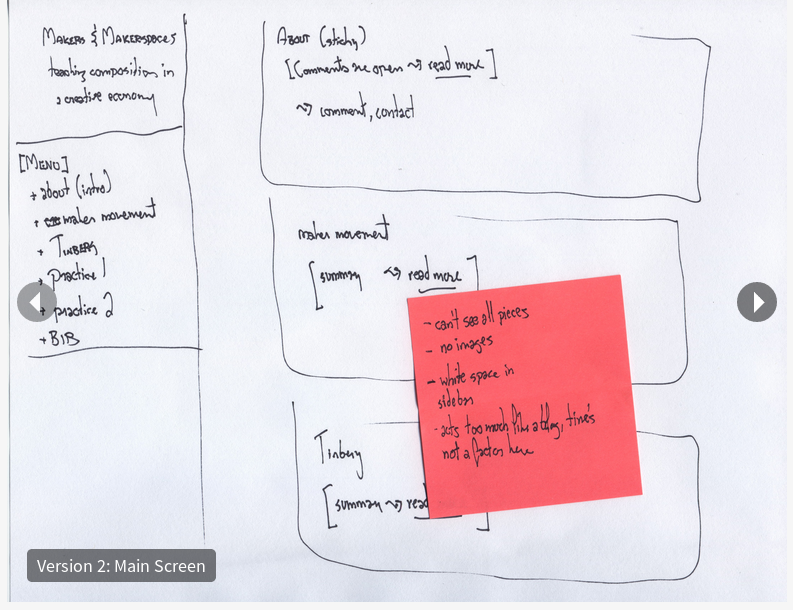 Makers & Makerspaces
teaching composition in
a creative economy
[Menu]
+ about (intro)
+ maker movement
+ Tinberg
+ practice 1
+ practice 2
+ BIB
About (sticky)
[Comments are open ~> read more]
~> comment, contact
maker movement
[summary ~> read more]
- can't see all pieces
- no images
- white space in
sidebar
- acts too much like a blog, time's
not a factor here
Tinberg
[summary ~> read
Version 2: Main Screen